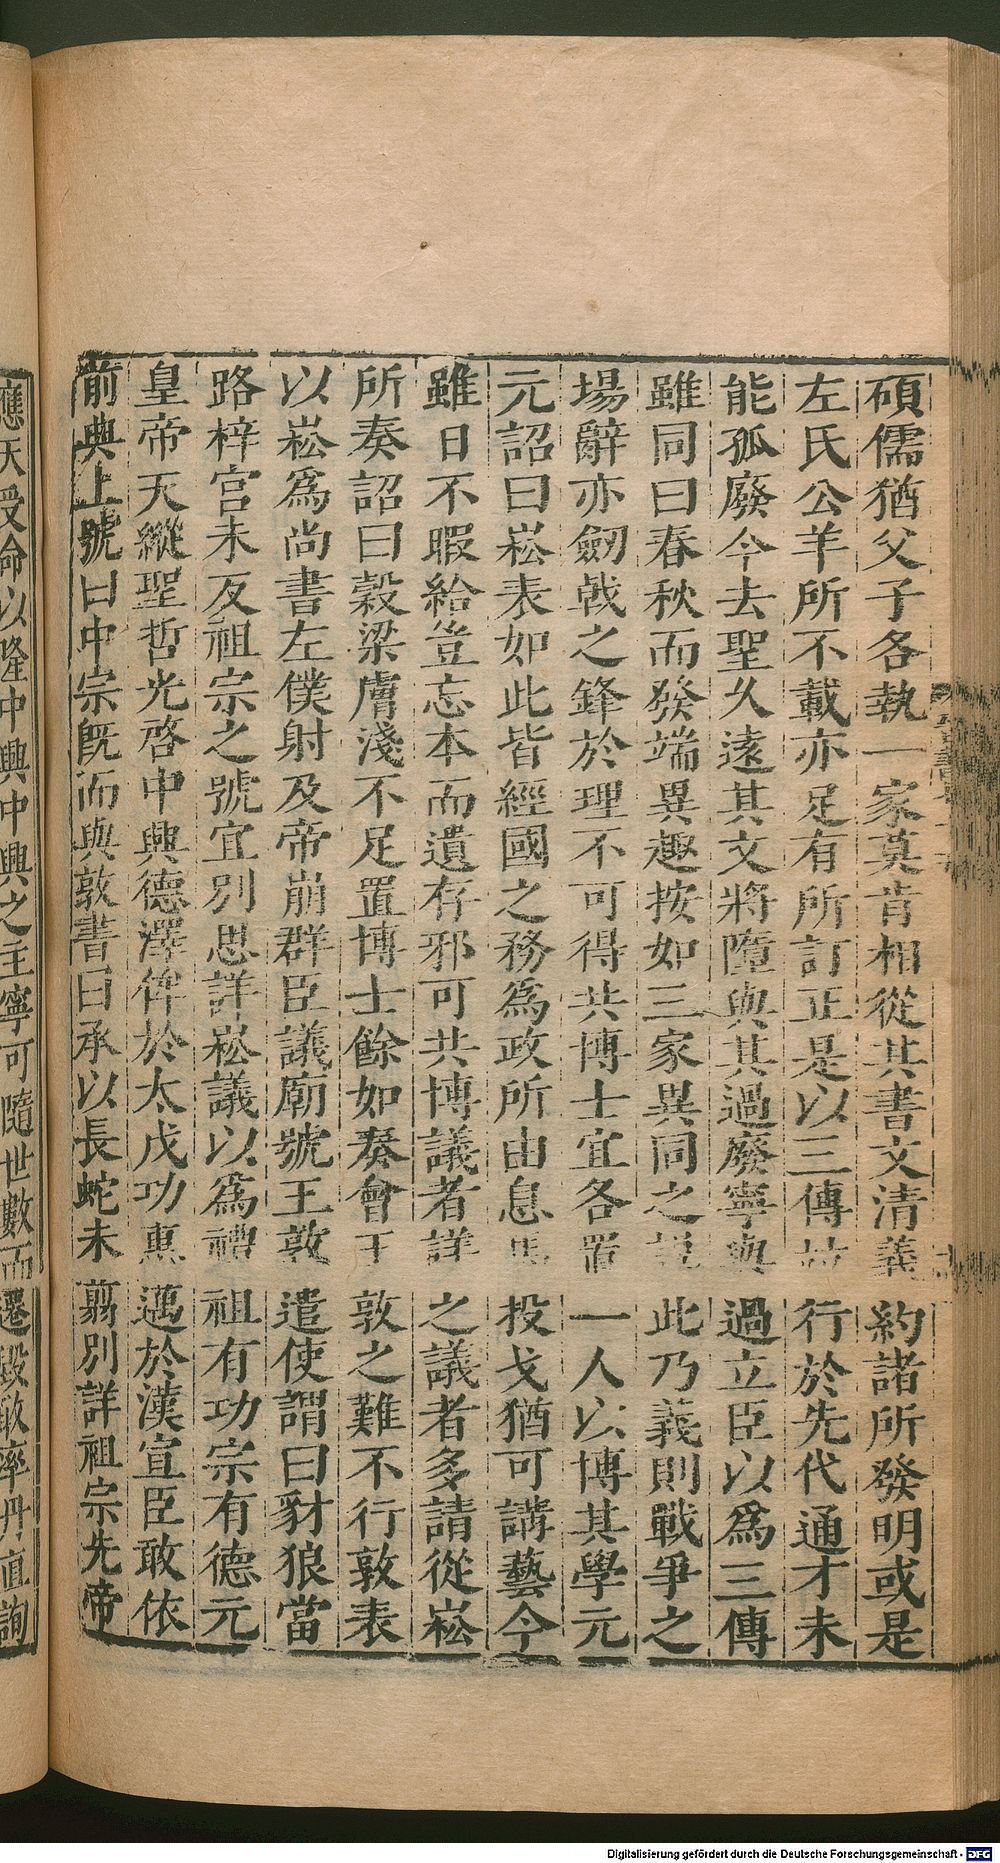 碩儒猶父子各執一家莫肯相從其書文清義約諸所發明或是
左氏公羊所不載亦足有所訂正是以三傳並行於先代通才未
能孤廢今去聖久遠其文將墮與其過廢寧與過立臣以爲三傳
雖同曰春秋而發端異趣按如三家異同之說此乃義則戰爭之
場辭亦劒戟之鋒於理不可得共博士宜各置一人以博其學元
元詔曰崧表如此皆經國之務爲政所由息馬投戈猶可講藝今
雖日不暇給豈忘本而遺存邪可共博議者詳之議者多請從崧
所奏詔曰穀梁膚淺不足置博士餘如奏會王敦之難不行敦表
以崧爲尚書左僕射及帝崩群臣議廟號王敦遣使謂曰豺狼當
路梓宮未反祖宗之號宜別思詳崧議以爲禮祖有功宗有德元
皇帝天縱聖哲光啓中興德澤侔於太戊功惠邁於漢宣臣敢依
前典上號曰中宗旣而與敦書曰承以長蛇未翦別詳祖宗先帝
應天受命以隆中興中興之主寧可隨世數而遷毀敢率丹直詢
Digitalisierung gefördert durch die Deutsche Forschungsgemeinschaft - DFG